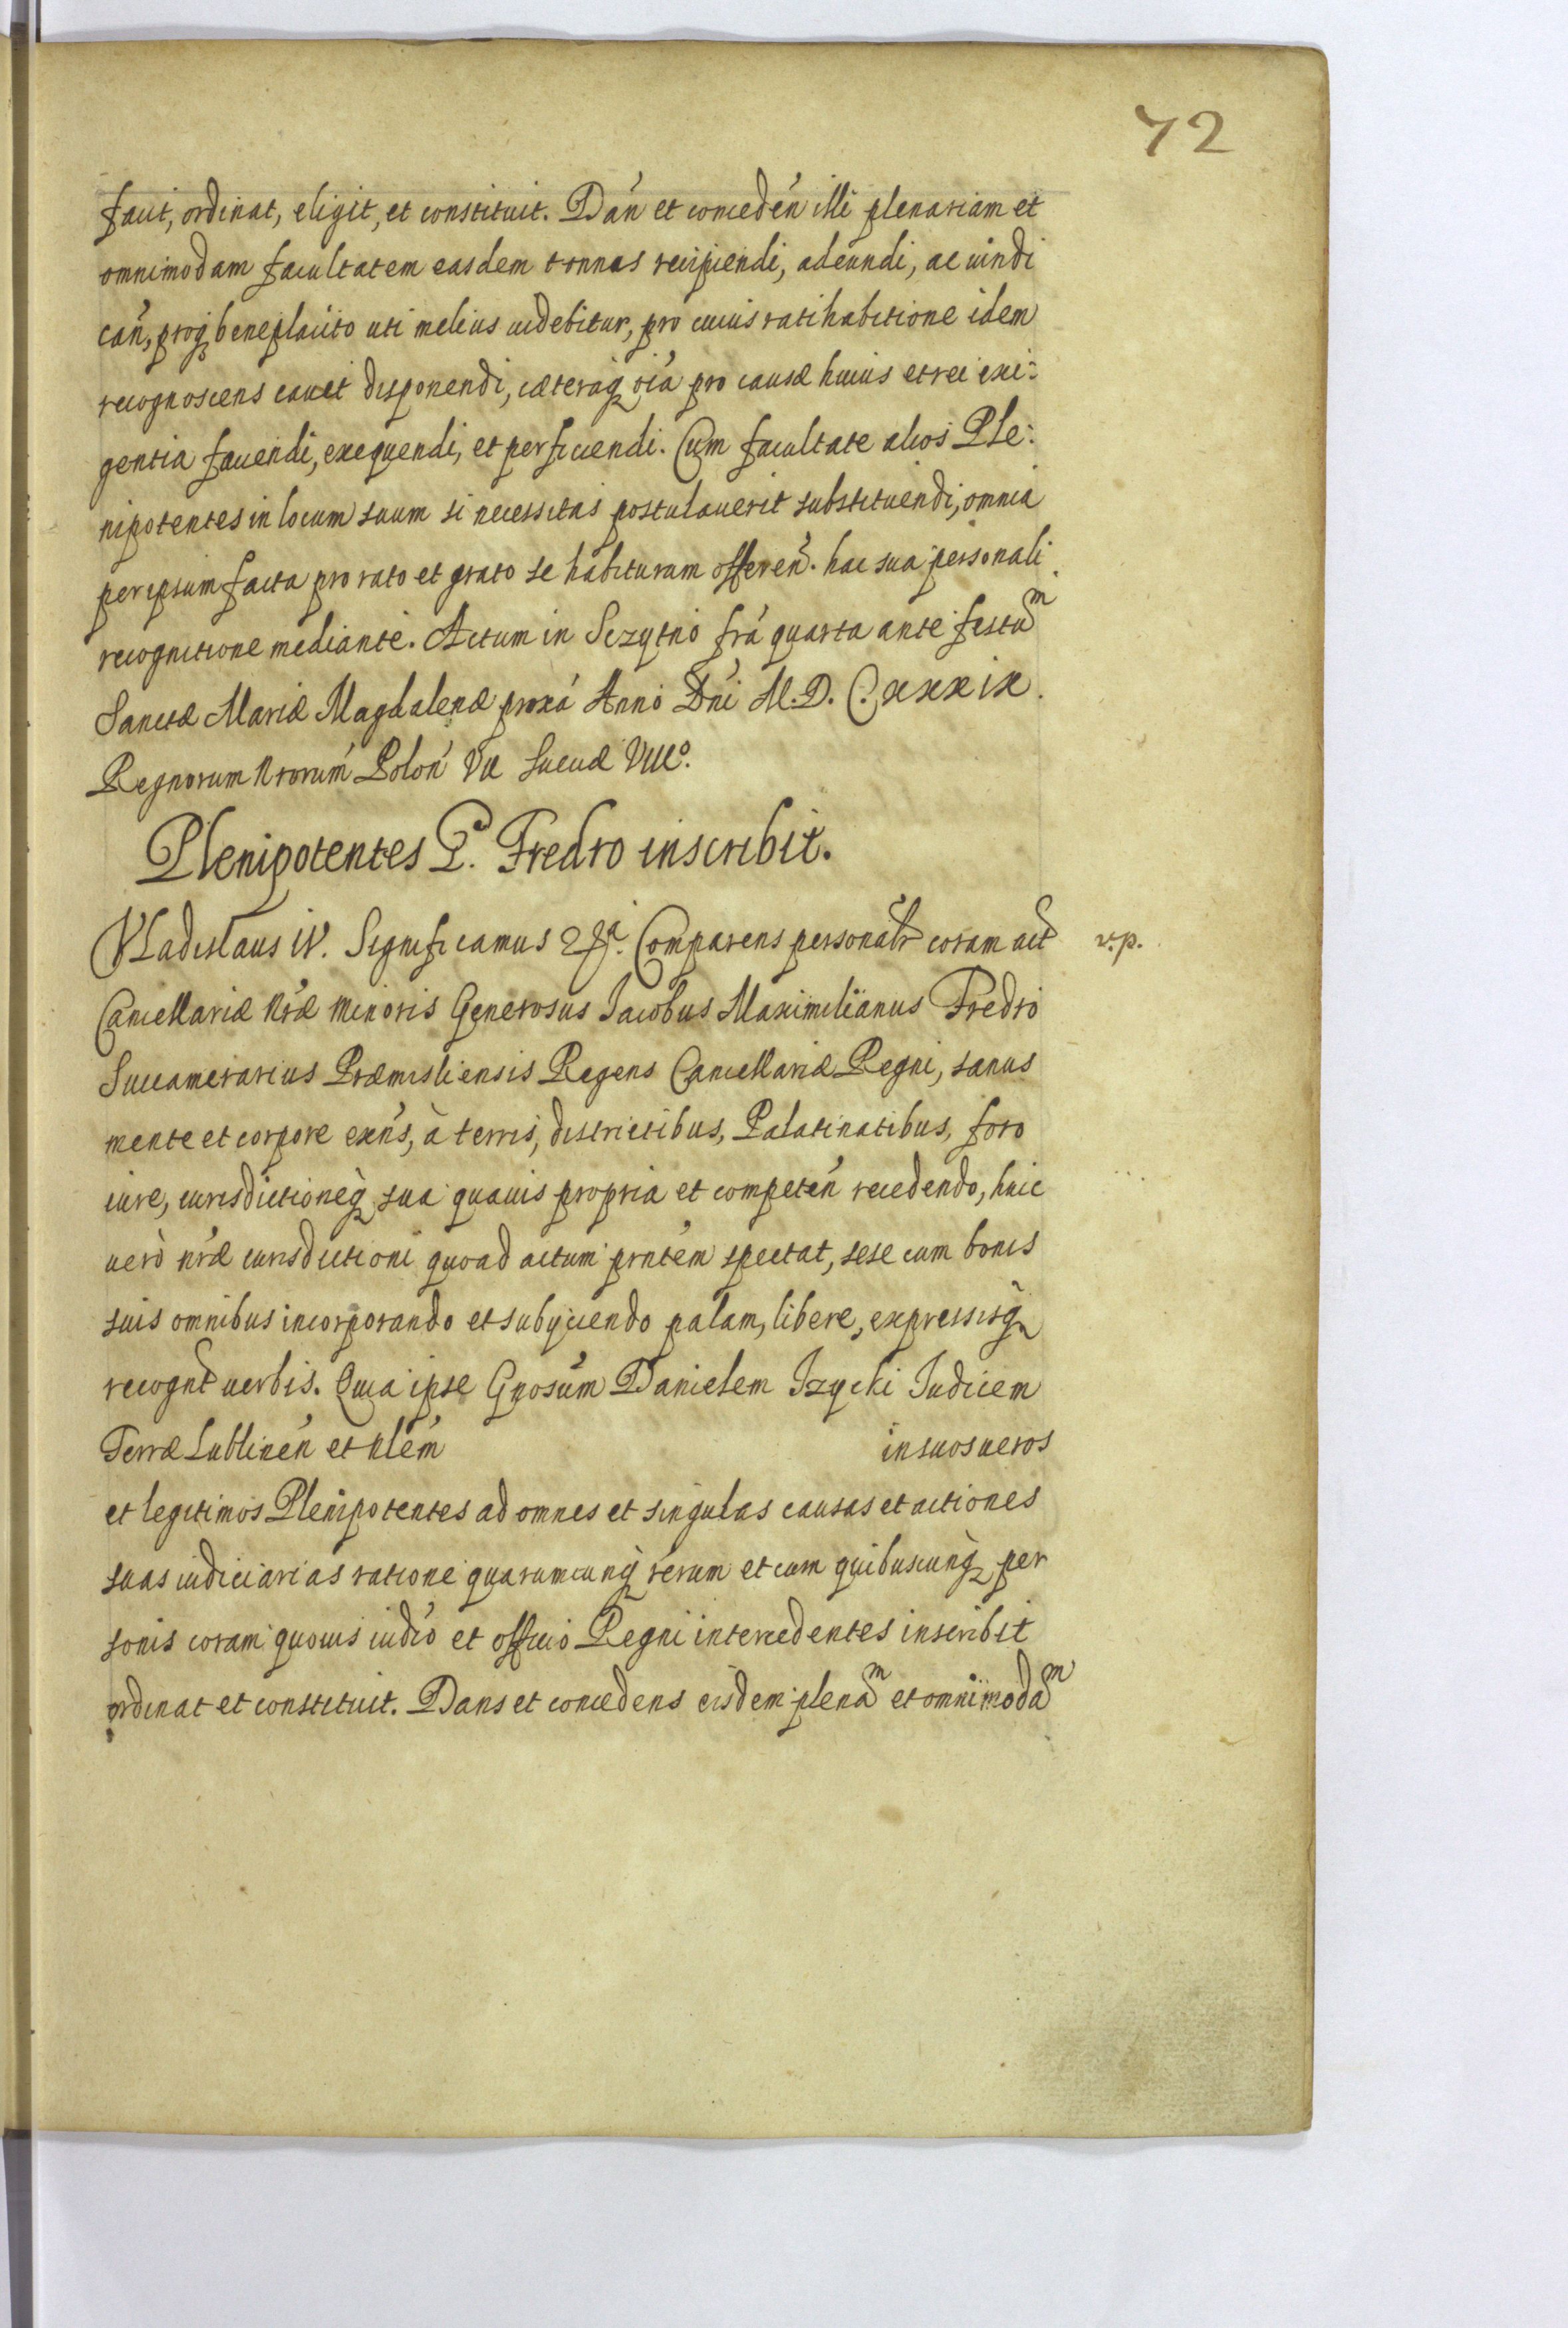 72
facit, ordinat, eligit, et constituit. Dań et conceden̄ illi plenariam et
omnimodam facultatem easdem tonnas recipiendi, adeundi, ac uindi
cań, proq; beneplacito uti melius uidebitur, pro cuius ratihabitione idem
recognoscens cauet disponendi, cæteraq; oia pro causæ huius et rei exi:
gentia faciendi, exequendi, et perficiendi. Cum facultate alios Ple:
nipotentes in locum suum si necessitas postulauerit substituendi, omnia
per ipsum facta pro rato et grato se habiturum offeren̄. hac sua personali
recognitione mediante. Actum in Sczytno fra quarta ante festum
Sanctæ Mariæ Magdalenæ proxa Anno Dni M.D.C.xxxix.
Regnorum Nrorum Polon̄ VII Sueciæ VIIIo.
Plenipotentes G. Fredro inscribit.
Vladislaus IV. Significamus &a. Comparens personalr coram act
v.p.
Cancellariæ Nræ Minoris Generosus Jacobus Maximilianus Fredro
Succamerarius Præmisliensis Regens Cancellariæ Regni, sanus
mente et corpore exn̄s, à terris, districtibus, Palatinatibus, foro
iure, iurisdictioneq; sua quauis propria et competen̄ recedendo, huic
uerò nræ iurisdictioni quoad actum prntem spectat, sese cum bonis
suis omnibus incorporando et subijciendo palam, libere, expressisq;
recognt uerbis. Quia ipse Gnosum Danielem Izycki Iudicem
Terræ Lublinen̄ et Nlem in suos ueros
et legitimos Plenipotentes ad omnes et singulas causas et actiones
suas iudiciarias ratione quarumcunq; rerum et cum quibuscunq; per
sonis coram quouis iudio et officio Regni intercedentes inscribit
ordinat et constituit. Dans et concedens eisdem plenam et omnimodam